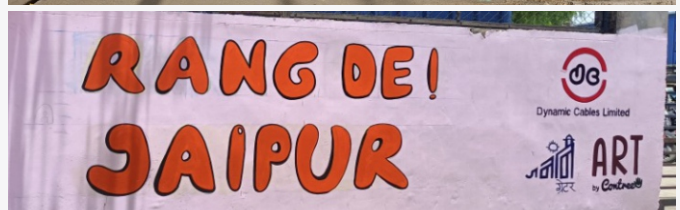 RANG DE!
JAIPUR
Dynamic Cables Limited
ग्रेटर
ART
by